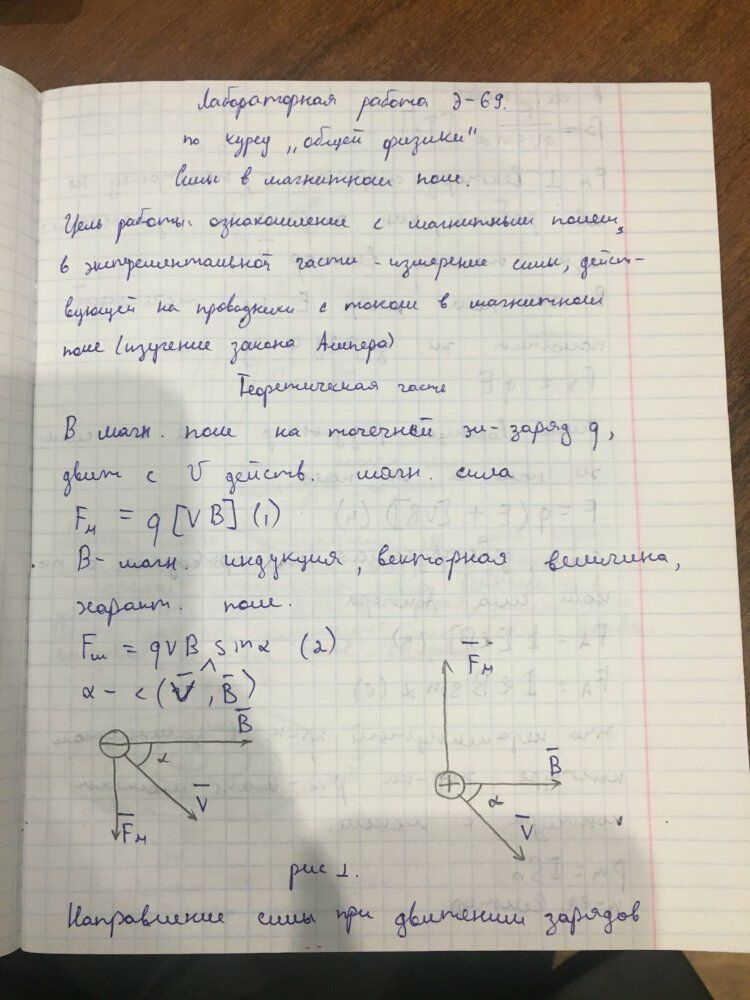 Лабораторная работа Э-69.
по курсу „общей физики"
Силы в магнитном поле.
Цель работы: ознакомление с магнитным полем,
в экспрементальной части - измерение силы, дейст-
вующей на проводники с током в магнитном
поле (изучение закона Ампера)
Теоретическая часть
В магн. поле на точечный эл-заряд q,
движ с V действ. магн. сила
Fм = q [VB] (1)
В- магн. индукция, векторная величина,
характ. поле.
Fм = qVB sinα (2)
α - < (V̅ ^, B̅)
B̅
α
V̅
F̅м
F̅м
B̅
α
V̅
рис 1.
Направление силы при движении зарядов